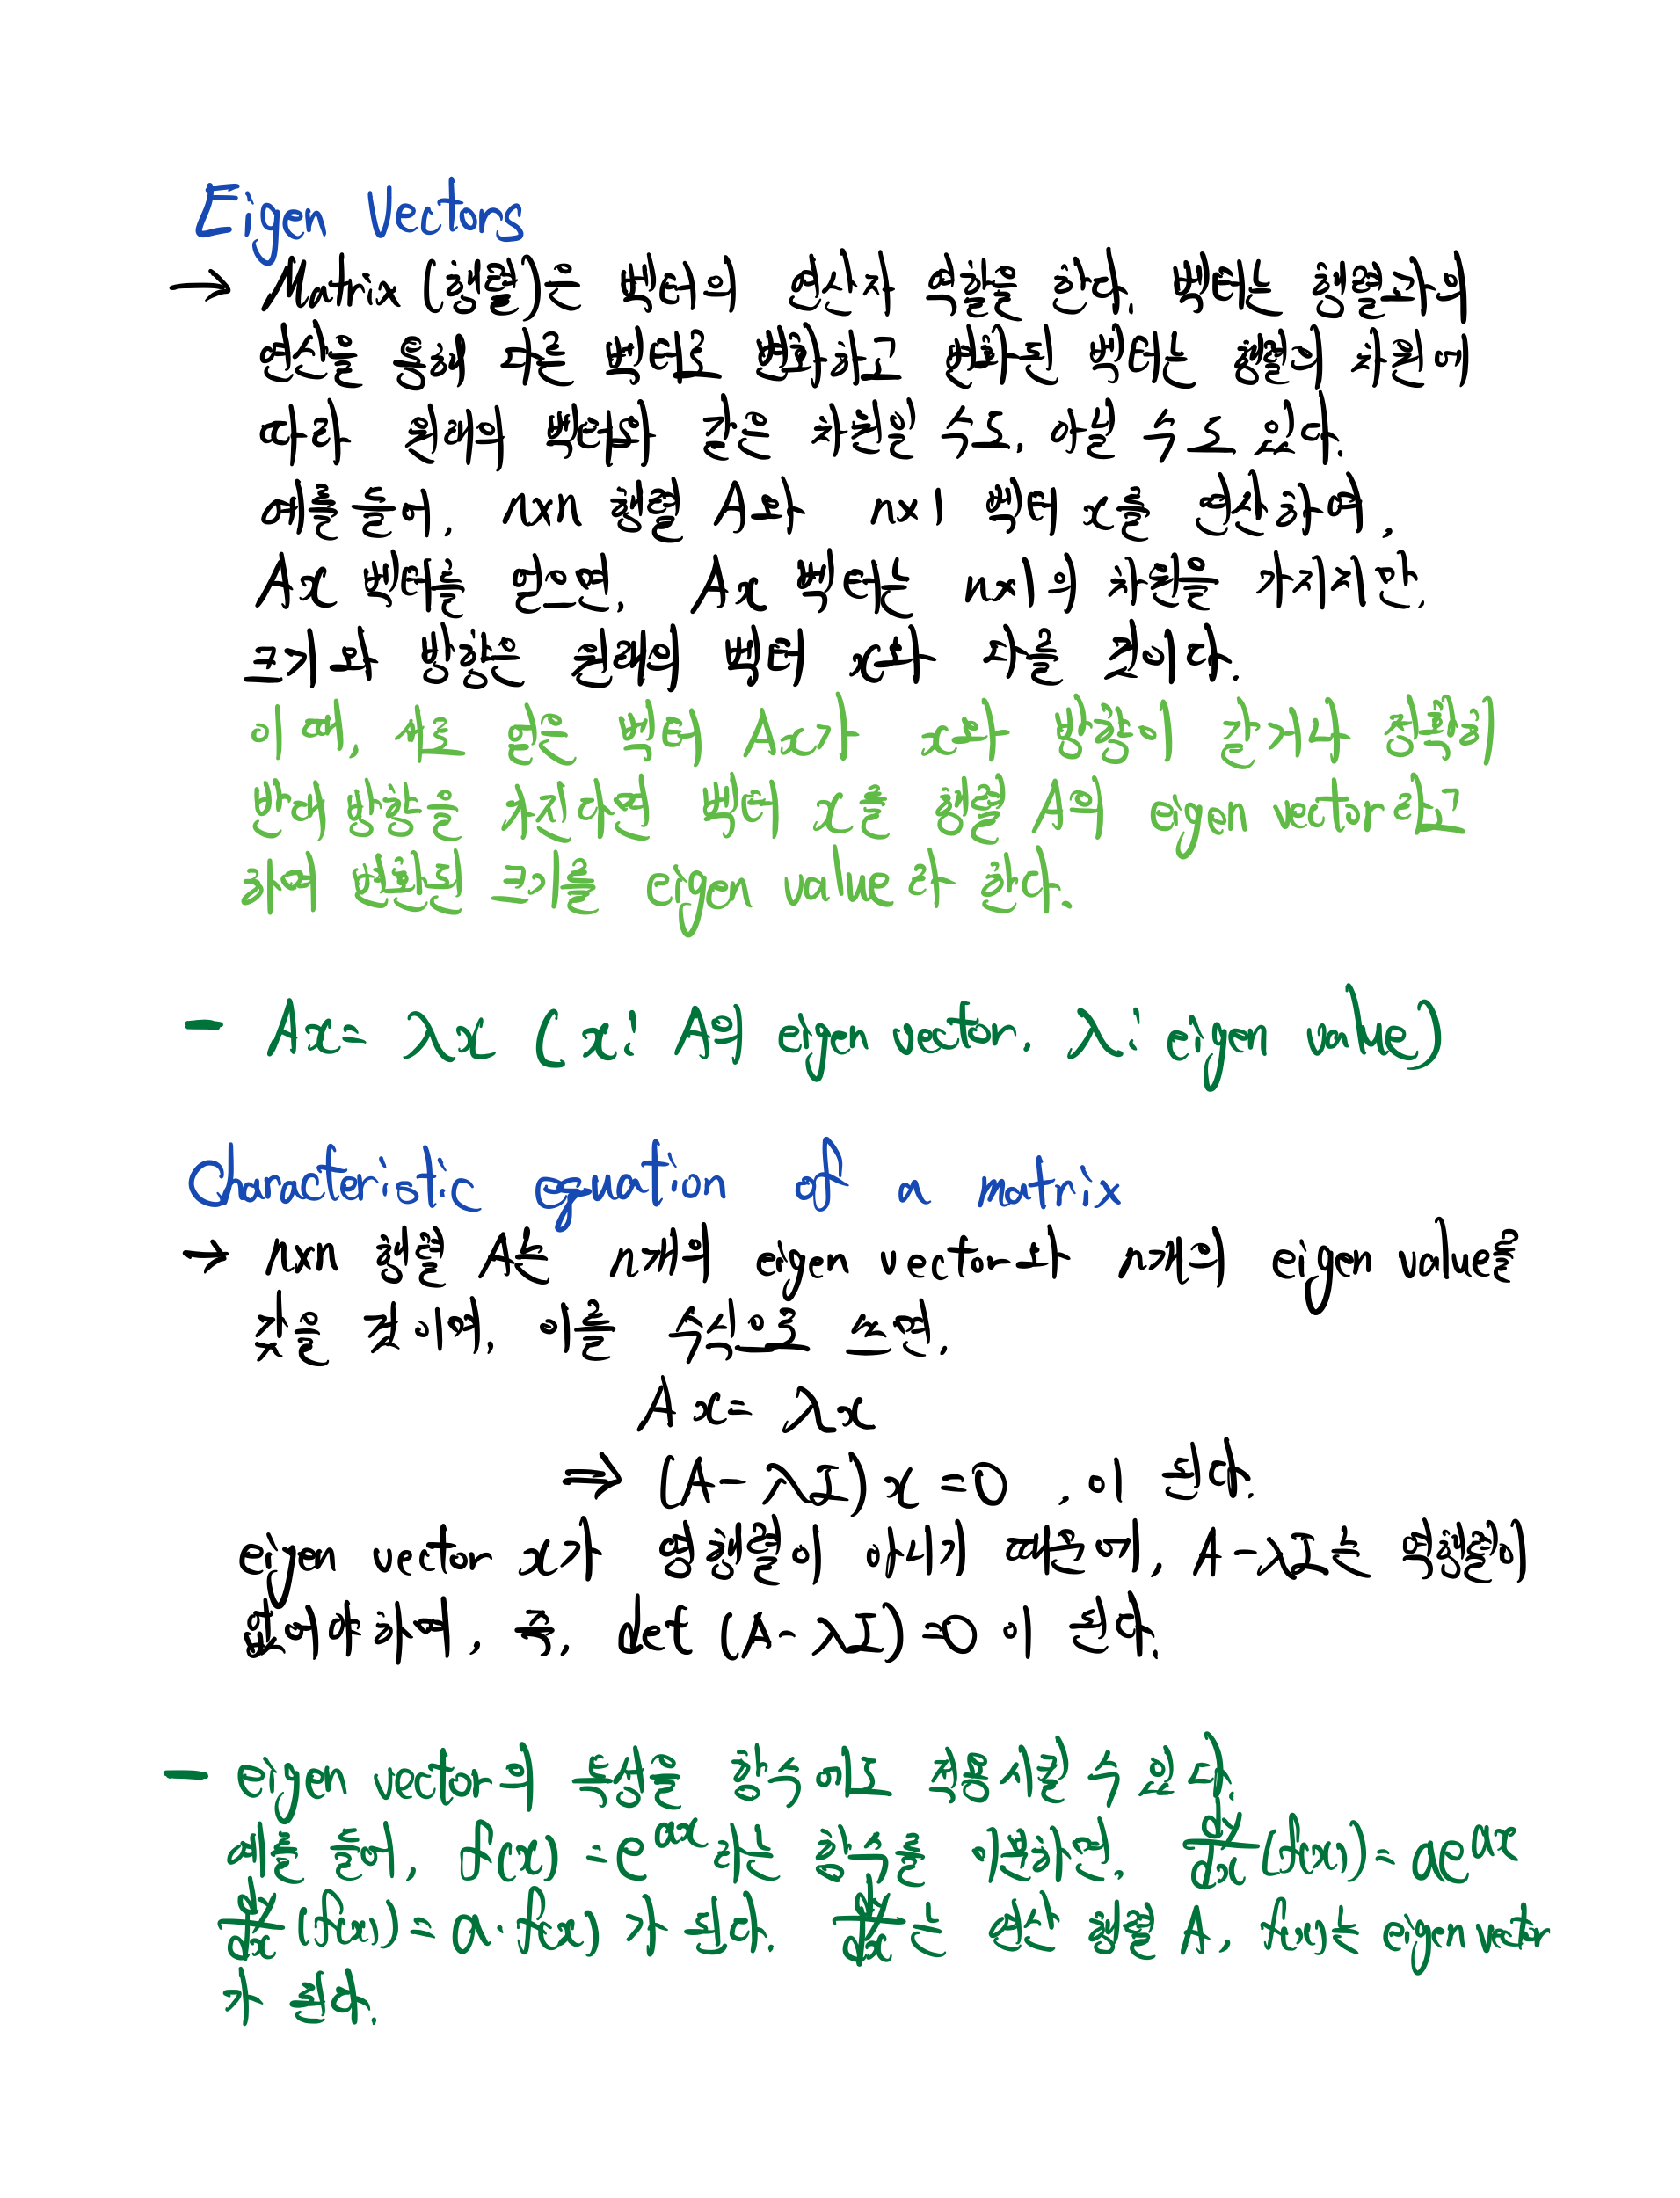 Eigen Vectors
→ Matrix (행렬)은 벡터의 연산자 역할을 한다. 벡터는 행렬과의
연산을 통해 다른 벡터로 변환하고 변화된 벡터는 행렬의 차원에
따라 원래의 벡터와 같은 차원일 수도, 아닐 수도 있다.
예를 들어, nxn 행렬 A와 nx1 벡터 x를 연산하여,
Ax 벡터를 얻으면, Ax 벡터는 nx1의 차원을 가지지만,
크기와 방향은 원래의 벡터 x와 다를 것이다.
이 때, 새로 얻은 벡터 Ax가 x와 방향이 같거나 정확히
반대 방향을 가진다면 벡터 x를 행렬 A의 eigen vector라고
하며 변환된 크기를 eigen value라 한다.
- Ax = λx (x: A의 eigen vector, λ: eigen value)
Characteristic equation of a matrix
→ nxn 행렬 A는 n개의 eigen vector와 n개의 eigen value를
갖을 것이며, 이를 수식으로 쓰면,
Ax = λx
⇒ (A - λI) x = 0 , 이 된다.
eigen vector x가 영행렬이 아니기 때문에, A - λI는 역행렬이
없어야 하며, 즉, det (A - λI) = 0 이 된다.
- eigen vector의 특성을 함수에도 적용시킬 수 있다.
예를 들어, f(x) = e^ax 라는 함수를 미분하면, dy/dx (f(x)) = ae^ax
dy/dx (f(x)) = a·f(x) 가 된다. dy/dx는 연산 행렬 A, f(x)는 eigen vector
가 된다.